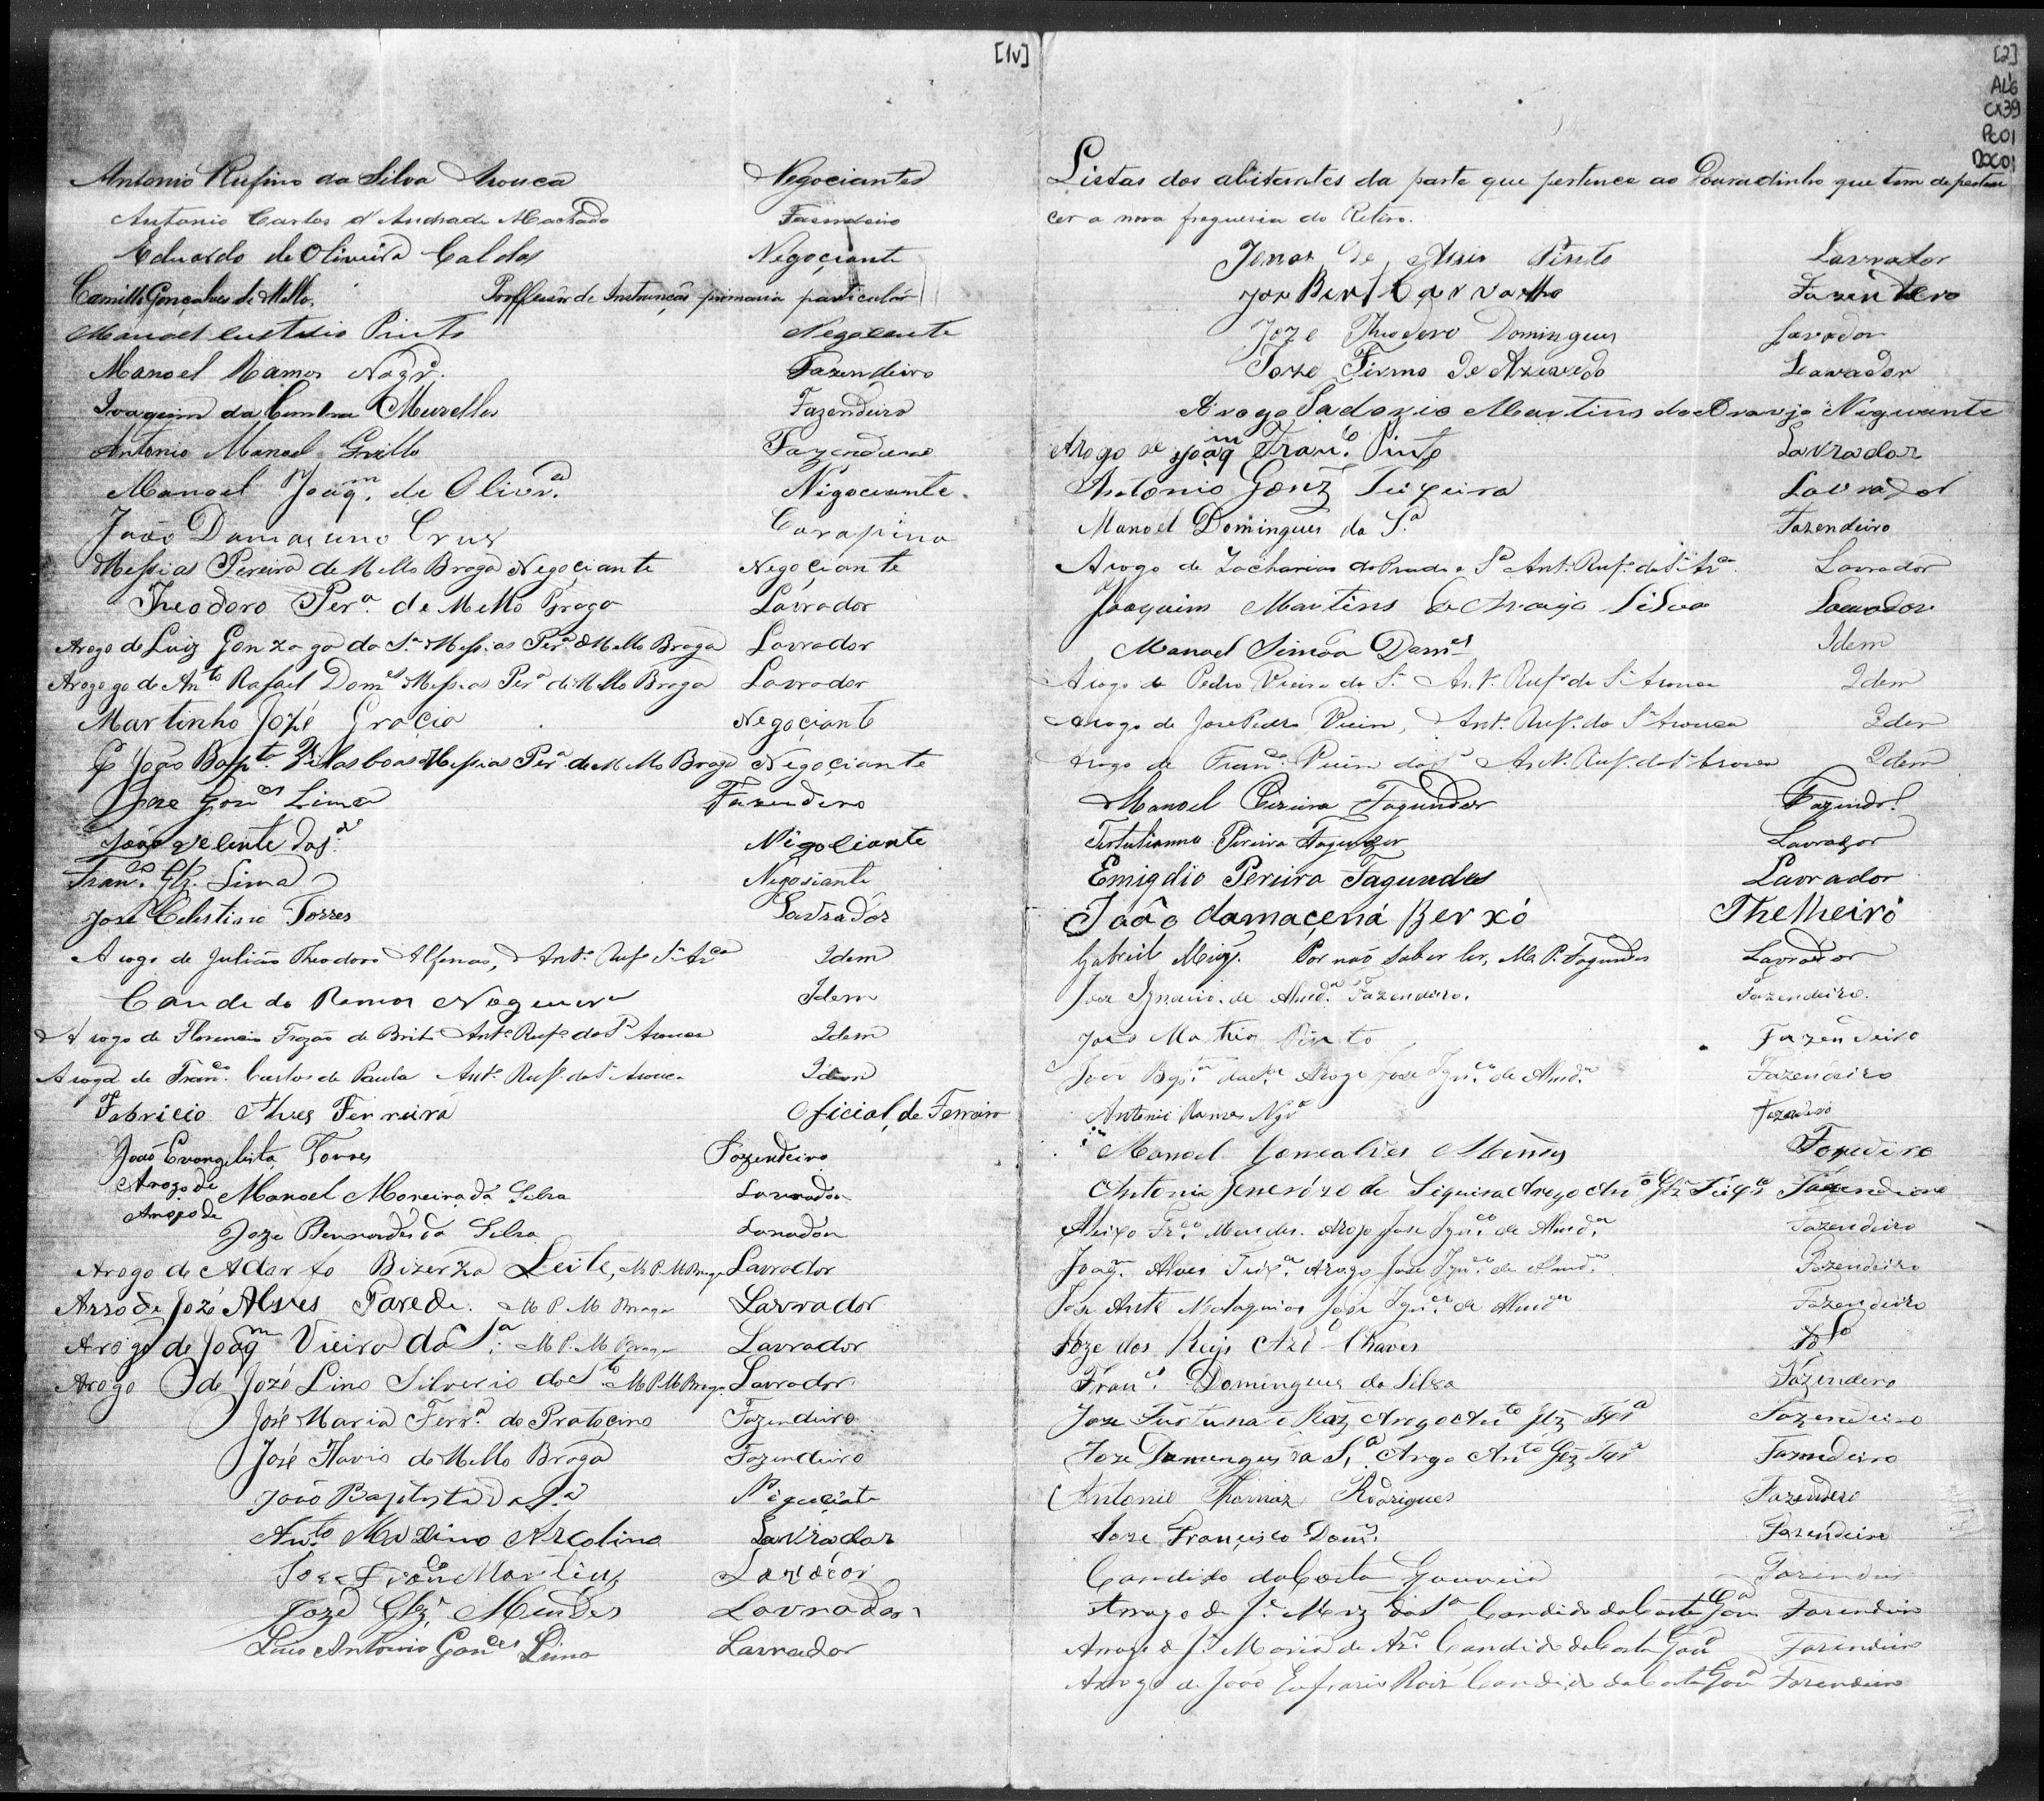 [1v]
Antonio Rufino da Silva Arouca Negociante
Antonio Carlos d'Andrade Machado Fasendeiro
Eduardo de Oliveira Caldas Negoçiante
Camillo Gonçalves de Mello, Proffessôr de Instrucção primaria particular
Manoel Custodio Pinto Negociante
Manoel Ramos Nogr.ª Fazendeiro
Joaquim da Cunha Meirelles Fazendeiro
Antonio Manoel Grillo Fazendeiro
Manoel Joaq.m de Olivr.ª Nigociante.
João Damaceno Cruz Carapina
Messias Pereira de Mello Braga Negoçiante Negoçiante
Theodoro Per.ª de Mello Braga Lavrador
Arogo de Luiz Gonzaga da S.ª Messias Per.ª de Mello Braga Lavrador
Arogo go de An.to Rafael Dom.es Messias Per.ª de Mello Braga Lavrador
Martinho José Gracia Negoçiante
João Bap.ta Vilasboas Messias Per.ª de Mello Braga Negoçiante
Jose Gon.es Lima Fazendero
João Velente da S.ª Nigoliante
Fran.co Glz. Lima Negosiante
José Celestino Torres Lavrador
A rogo de Julião Theodoro Alfenas, Ant.o Ruf.o S.ª Ar.ca Idem
Candido Ramos Nogueira Idem
A rogo de Florencio Trozão de Brito Ant.o Ruf.o da S.ª Arouca Idem
A rogo de Fran.co Carlos de Paula Ant.o Ruf.o da S.ª Arouca Idem
Fabricio Alves Ferreira Oficial de Ferreiro
João Evangelista Torres Fazendeiro
Arogo de Manoel Moreira da Silva Lavrador
Arogo de Joze Bernardes da Silva Lavrador
Arogo de Adar to Bizerra Leite, M. P. M Braga Lavrador
Arro de Jozé Alves Parede. M P. M Braga Larvrador
Arogo de Joaq.m Vieira da S.ª M P. M Braga Lavrador
Arogo de Jozé Lino Silverio do S.to M P M Braga Lavrador
José Maria Ferr.ª de Protocino Fazendeiro
José Flavio de Mello Braga Fazendeiro
João Baptista da S.ª Negociante
An.to Maximo Arcolino Lavrador
Jose Fran.co Martins
Joze Glz. Mendes Lavrador
Luis Antonio Gon.ces Lima Larrador
[2]
AL6
CX39
PC01
DOC01
Listas dos abitantes da parte que pertence ao Douradinho que tem de perten
cer a nova freguesia do Retiro.
Jonas de Assis Pinto Lavrador
Jose Bent Carvalho Fazendero
Joze Theodoro Domingues Lavador
Joze Firmo de Azevedo Lavador
Arogo Ladozio Martins do Araujo Nigociante
Arogo de Joaq.m Fran.co Pinto Lavrador
Antonio Gonz Teixeira Lavrador
Manoel Domingues da S.ª Fazendeiro
A rogo de Zacharias do Prado e S.ª Ant.o Ruf.o da S.ª Ar.ca Lavrador
Joaquim Martins de Araujo Silva Lavrador
Manoel Simão Dom.es Idem
A rogo de Pedro Vieira da S.ª Ant.o Ruf.o da S.ª Arouca Idem
A rogo de Jose Pedro Vieira, Ant.o Ruf.o da S.ª Arouca Idem
A rogo de Fran.co Vieira da S.ª Ant.o Ruf.o da S.ª Arouca Idem
Manoel Pereira Fagundes Fazendr.o
Tertulianno Pereira Fagundes Lavrador
Emigdio Pereira Fagundes Lavrador
João damaçená Berxó Thelheiró
Gabriel Por naõ saber ler, M. P. Fagundes Lavrador
Jose Ignacio de Almd.ª Fazendeiro. Fazendeiro.
Mathias Pinto Fazendeiro
João Bap.ta da S.ª Arogo Jose Ign.co de Almd.ª Fazendeiro
Antonio Ramos Ngr.ª Fazendeiro
Manoel Goncalves Mendes
Antonio Jenerózo de Siqueira Arogo An.to Glz Teixr.ª Fazendeiro
Aleixo Fr.co Mendes. Arogo Jose Ign.co de Almd.ª Fazendeiro
Joaq.m Alves Teix.ª Arogo Jose Ign.co de Almd.ª Fazendeiro
Jose Ant.o Malaquias Jose Ign.co de Almd.ª Fazendeiro
Joze dos Reijs Chaves
Fran.co Domingues da Silva Fazendero
Joze Furtunato Arogo An.to Glz Fazendeiro
Joze Domingues da S.ª Arogo An.to Glz Fazendeiro
Antonio Thomaz Rodrigues Fazendero
Joze Françisco Dom.es Fazendeiro
Candido da Costa Gouveia Fazendeiro
Arrogo de da S.ª Candido da Costa Gou.ª Fazendeiro
Arrogo de Maria de Candido da Costa Gou.ª Fazendeiro
Arrogo de João Candido da Costa Gou.ª Fazendeiro